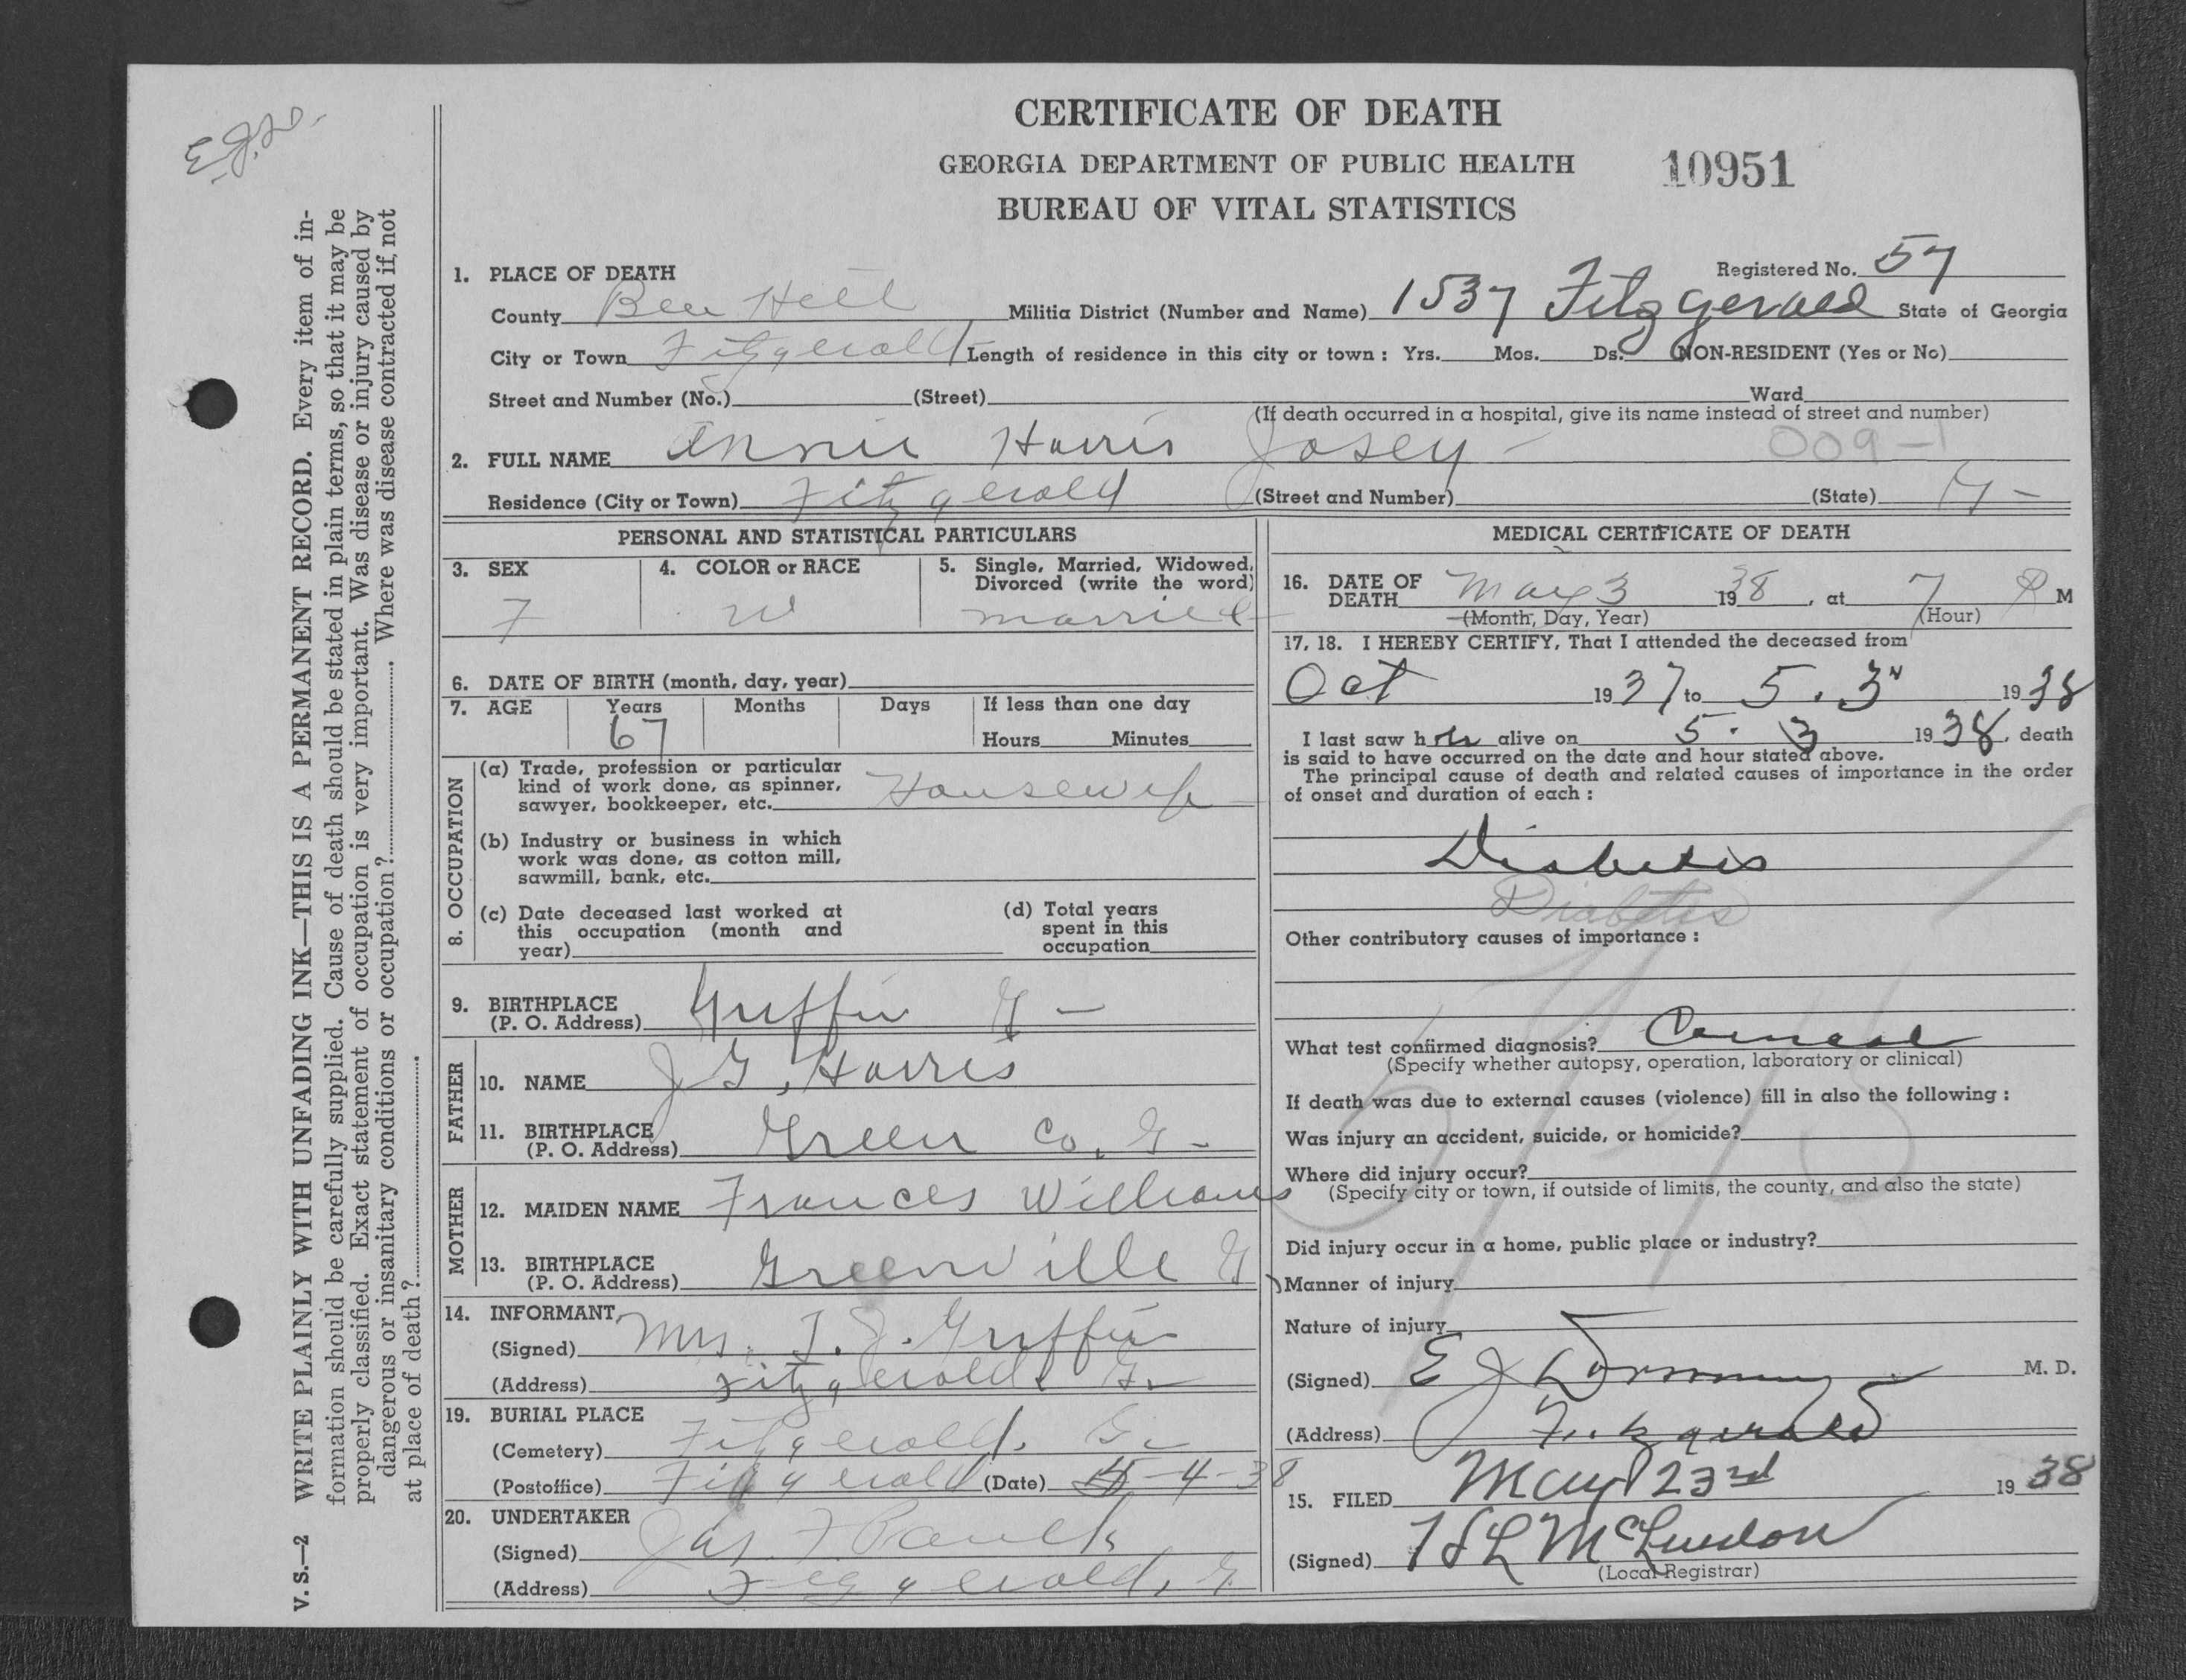 CERTIFICATE OF DEATH
GEORGIA DEPARTMENT OF PUBLIC HEALTH 10951
BUREAU OF VITAL STATISTICS
Registered No. 57
1. PLACE OF DEATH
County Ben Hill Militia District (Number and Name) 1537 Fitzgerald State of Georgia
City or Town Fitzgerald Length of residence in this city or town: Yrs. Mos. Ds. NON-RESIDENT (Yes or No)
Street and Number (No.) (Street) Ward
(If death occurred in a hospital, give its name instead of street and number)
009-1
2. FULL NAME Annie Harris Josey
Residence (City or Town) Fitzgerald (Street and Number) (State) G-
PERSONAL AND STATISTICAL PARTICULARS
3. SEX F
4. COLOR or RACE W
5. Single, Married, Widowed, Divorced (write the word) married
6. DATE OF BIRTH (month, day, year)
7. AGE Years 67 Months Days If less than one day
Hours Minutes
8. OCCUPATION
(a) Trade, profession or particular
kind of work done, as spinner,
sawyer, bookkeeper, etc. Housewife
(b) Industry or business in which
work was done, as cotton mill,
sawmill, bank, etc.
(c) Date deceased last worked at
this occupation (month and
year)
(d) Total years
spent in this
occupation
9. BIRTHPLACE
(P. O. Address) Griffin G-
FATHER
10. NAME J G, Harris
11. BIRTHPLACE
(P. O. Address) Green Co, G-
MOTHER
12. MAIDEN NAME Frances Williams
13. BIRTHPLACE
(P. O. Address) Greenville G
14. INFORMANT
(Signed) Mrs. T. J. Griffin
(Address) Fitzgerald, G-
19. BURIAL PLACE
(Cemetery) Fitzgerald, G-
(Postoffice) Fitzgerald (Date) 5-4-38
20. UNDERTAKER
(Signed) Jas. F Paulk
(Address) Fitzgerald, G
MEDICAL CERTIFICATE OF DEATH
16. DATE OF
DEATH May 3 1938, at 7 P M
(Month, Day, Year) (Hour)
17, 18. I HEREBY CERTIFY, That I attended the deceased from
Oct 1937 to 5. 3 1938
I last saw her alive on 5. 3 1938, death
is said to have occurred on the date and hour stated above.
The principal cause of death and related causes of importance in the order
of onset and duration of each:
Diabetis
Diabetes
Other contributory causes of importance:
What test confirmed diagnosis?
(Specify whether autopsy, operation, laboratory or clinical)
If death was due to external causes (violence) fill in also the following:
Was injury an accident, suicide, or homicide?
Where did injury occur?
(Specify city or town, if outside of limits, the county, and also the state)
Did injury occur in a home, public place or industry?
Manner of injury
Nature of injury
(Signed) E J Dorminy M. D.
(Address) Fitzgerald
15. FILED May 23rd 1938
(Signed) McLendon
(Local Registrar)
V. S.—2 WRITE PLAINLY WITH UNFADING INK—THIS IS A PERMANENT RECORD. Every item of in-
formation should be carefully supplied. Cause of death should be stated in plain terms, so that it may be
properly classified. Exact statement of occupation is very important. Was disease or injury caused by
dangerous or insanitary conditions or occupation? Where was disease contracted if not
at place of death?